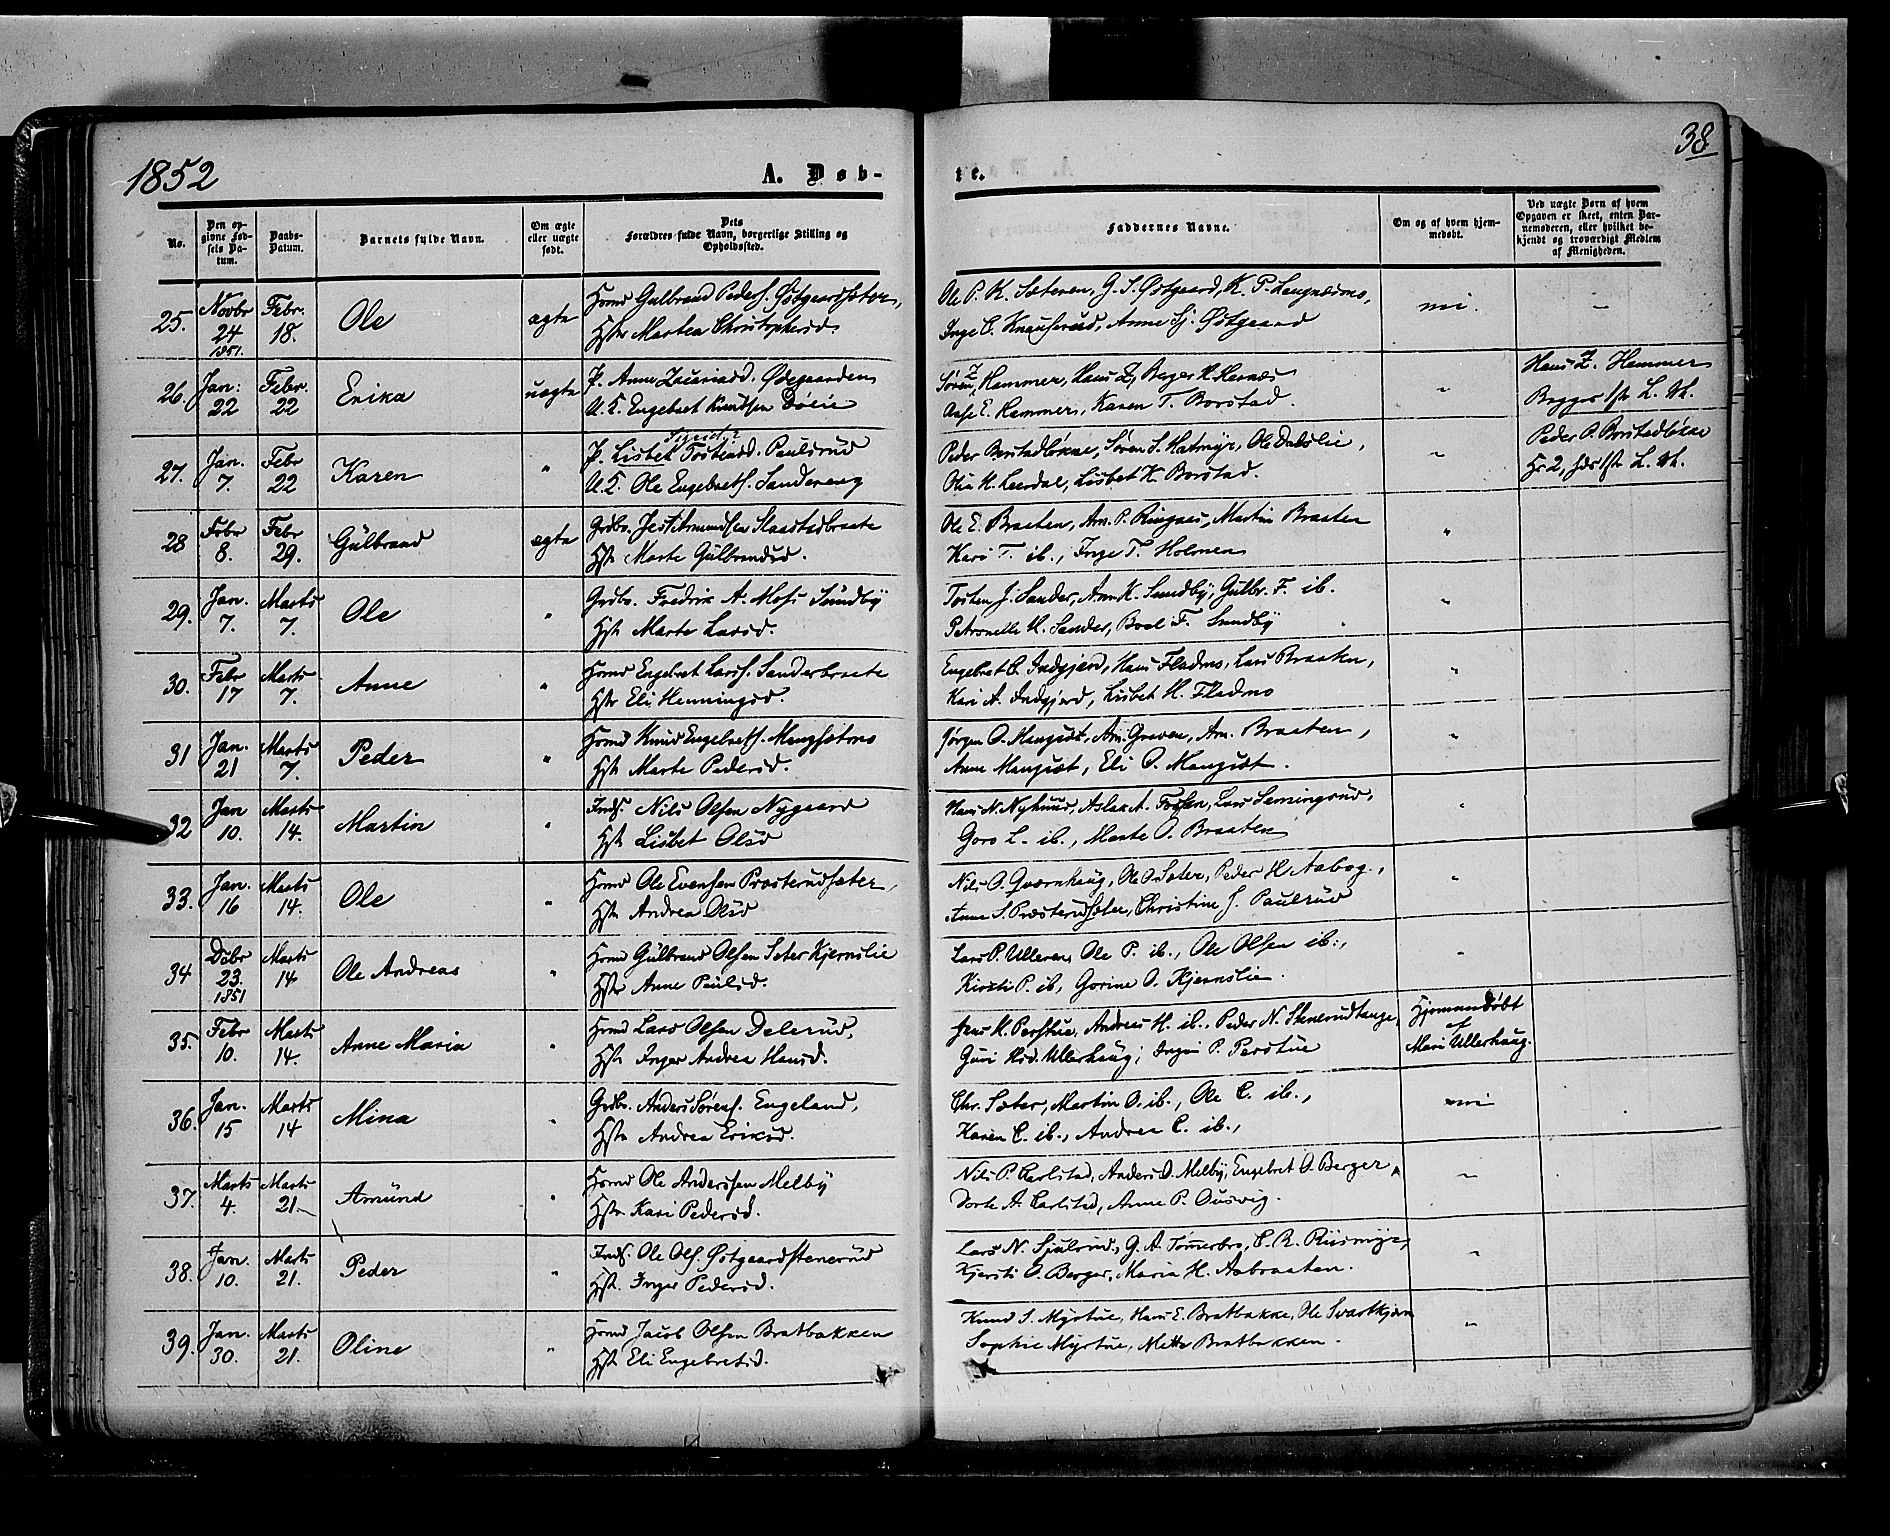 1852
A. Døb-
te.
38
No.
Den op-
givne Fød-
sels Da-
tum.
Daabs-
Datum.
Barnets fulde Navn.
Om ægte
eller uægte
født.
Dets
Forældres fulde Navn, borgerlige Stilling og
Opholdssted.
Faddernes Navne.
Om og af hvem hjem-
medøbt.
Ved uægte Børn af hvem
Opgaven er skeet, enten Bar-
nemoderen, eller hvilket be-
kjendt og troværdigt Medlem
af Menigheden.
25. Novbr 24 1851. Febr. 18. Ole ægte Hmd Gulbrand Peders. Østgaardsæter,
Hstr Marthea Christophersd.
Ole P. K. Sæteren, G. S. Østgaard, K. P. Langnæsmo,
Inge C. Knauserud, Anne Sj. Østgaard
ni. –
26. Jan: 22 Febr. 22 Erika uægte P. Anne Zacariasd. Ødegaarden
U. K. Engebret Knudsen Døliè
Søren Z. Hammer, Hans Z, Berger H. Hernæs
Aase E. Hammer, Karen T. Borstad.
" Hans Z. Hammer
27. Jan. 7. Febr 22 Karen " P. Lisbet Tostensd. Paulsrud
U. K. Ole Engebrets. Sandereng
Peder Borstadløkke, Søren S. Hatmyr, Ole Dalslie,
Olia H. Leerdal, Lisbet K. Borstad.
" Peder P. Borstadløkke
28 Febr 8. Febr 29. Gulbrand ægte Grdbr. Amundsen Staastadbraate
Hstr Marte Gulbrandsd.
Ole E. Braaten, Am. P. Ringnæs, Martin Braaten
Kari T. ib., Inge T. Holmen
"
29. Jan. 7. Marts 7. Ole " Grdbr. Fredrik A. Moss Sundby
Hstr Marte Larsd.
Tosten J. Sander, Am. K. Sundby, Gulbr. F. ib.
Petronelle H. Sander, Boel F. Sundby
"
30. Febr 17 Marts 7. Anne " Hmd Engebret Larss. Sanderbraate
Hstr Eli Henningsd.
Engebret O. Indgjerd, Hans Fladmo, Lars Braaten,
Kari A. Indgjerd, Lisbet H. Fladmo
"
31 Jan. 21 Marts 7. Peder " Hmd Knud Engebrets. Mangsætmo
Hstr Marte Pedersd.
Jørgen O. Mangsæt, Am. Graven, Am. Braaten,
Anne Mangsæt, Eli O. Mangsæt.
"
32 Jan 10. Marts 14. Martin " Inds. Nils Olsen Nygaard
Hstr Lisbet Olsd
Hans N. Nyhuus, Aslak A. Fossen, Lars Lemingsrud,
Goro L. ib., Marte O. Braaten
"
33. Jan. 16 Marts 14. Ole " Hmd Ole Evensen Præsterudsæter,
Hstr Andrea Olsd
Nils O. Qværnhaug, Ole O. Sæter, Peder H. Aabog.,
Anne S. Præsterudsæter, Christine J. Paulsrud
"
34 Debr 23. 1851 Marts 14 Ole Andreas " Hmd Gulbrand Olsen Sæter Kjernslie
Hstr Anne Paulsd.
Lars P. Ulleren, Ole P. ib., Ole Olsen ib:,
Kirsti P. ib, Gorine O. Kjernslie.
"
35. Febr 10. Marts 14. Anne Maria " Hmd Lars Olsen Delerud,
Hstr Inger Andrea Hansd.
Jens K. Perstue, Andreas H. ib., Peder N. Stenerudtange,
Guri Ullerhaug, Ingri P. Perstue
Hjemmedøbt
af
Mari Ullerhaug.
36. Jan. 15 Marts 14 Mina " Grdbr. Anders Sørens. Engeland,
Hstr Andrea Eriksd.
Chr. Sæter, Martin O. ib., Ole C. ib.,
Karen C. ib., Andrea C. ib.,
ni
37. Marts 4. Marts 21. Amund " Hmd Ole Anderssen Melby
Hstr. Kari Pedersd.
Nils P. Carlstad, Anders O. Melby, Engebret O. Berger
Dorte A. Carlstad, Anne P. Ousvig.
"
38. Jan. 10. Marts 21. Peder " Inds. Ole Ols. Østgaardstenerud
Hstr. Inger Pedersd.
Lars N. Sjulsrud, G. A. Tømerbro, C. R. Riismyr,
Kjersti O. Berger, Maria H. Aabraaten.
"
39. Jan. 30. Marts 21. Oline " Hmd Jacob Olsen Bratbakken
Hstr Eli Engebretsd.
Knud S. Myrtue, Hans E. Bratbakke, Ole Svartkjern
Sophie Myrtue, Mette Bratbakken.
"